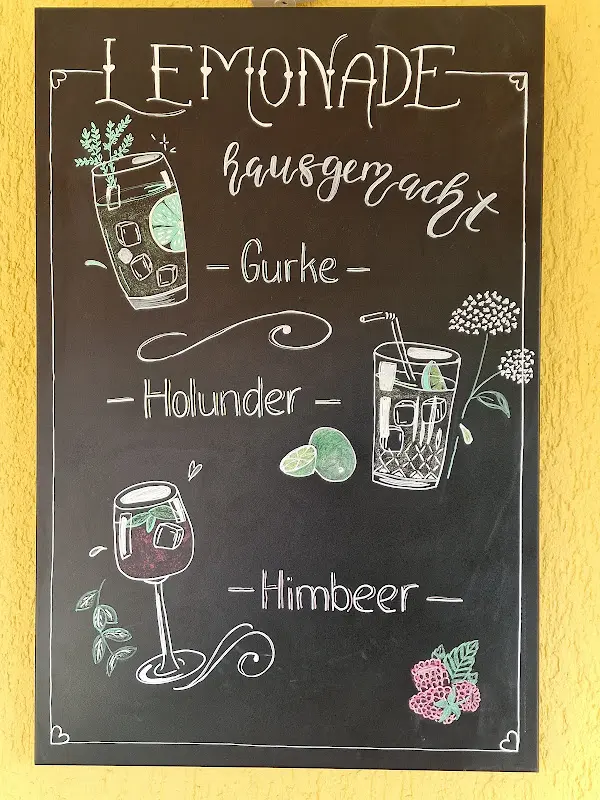 LEMONADE
hausgemacht
- Gurke -
- Holunder -
- Himbeer -